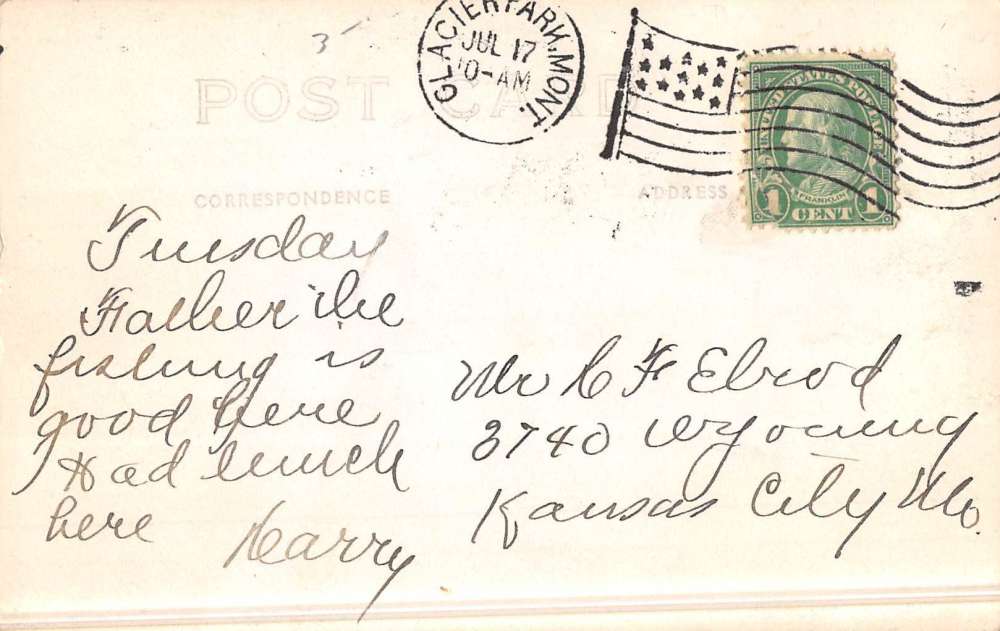 3
GLACIER PARK, MONT.
JUL 17
10-AM
UNITED STATES POSTAGE
FRANKLIN
1 CENT 1
POST CARD
CORRESPONDENCE
ADDRESS
Tuesday
Father the
fishing is
good here
Had lunch
here
Harry
Mr C F Elrod
3740 Wyoming
Kansas City Mo.